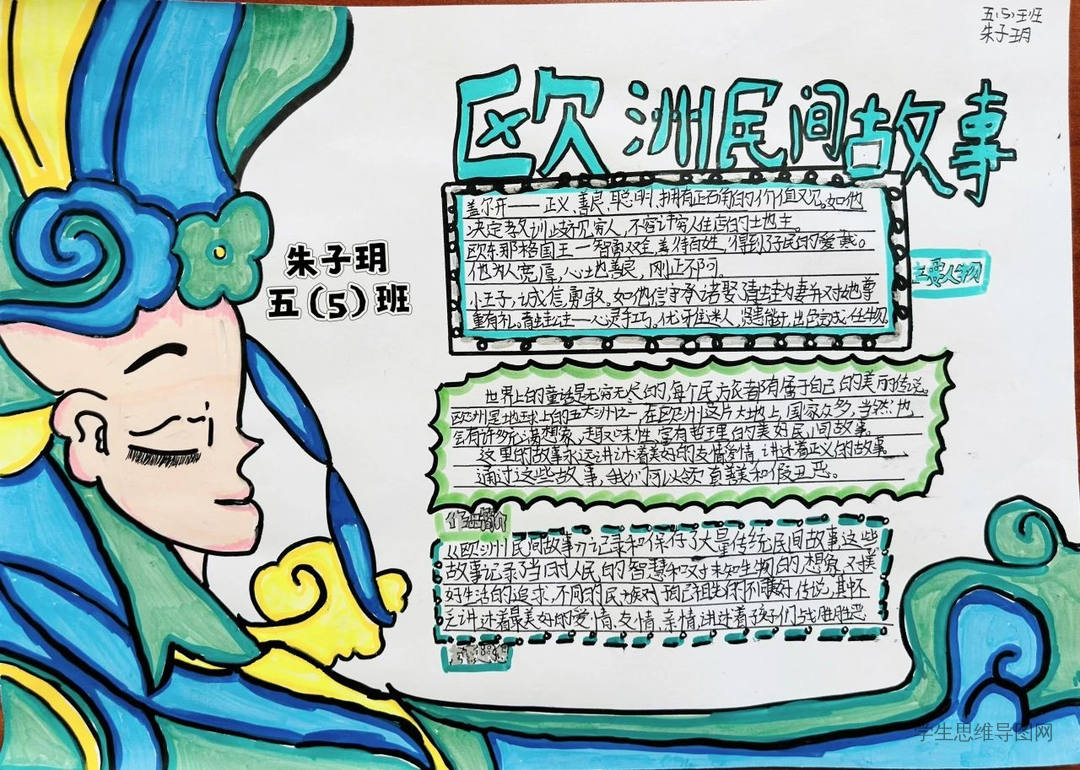 五(5)班
朱子玥
欧洲民间故事
朱子玥
五(5)班
盖尔开——正义、善良、聪明,拥有正确的价值观。如他
决定教训歧视穷人,不容许穷人住店的土地主。
欧东那格国王—智勇双全,善待百姓,得到子民的爱戴。
他为人宽厚,心地善良,刚正不阿。
小王子,诚信勇敢。如他信守承诺娶青蛙为妻并对她尊
重有礼。青蛙公主—心灵手巧。优雅迷人,是能出色完成任务
主要人物
世界上的童话是无穷无尽的,每个民族都有属于自己的美丽传说。
欧洲是地球上的五大洲之一,在欧洲这片大地上,国家众多,当然,也
会有许多充满想象、趣味性、富有哲理的美好民间故事。
这里的故事永远讲述着美好的友情爱情,讲述着正义的故事
通过这些故事,我们可以领真善美和假丑恶。
作 简介
《欧洲民间故事》记录和保存了大量传统民间故事这些
故事记录了当时人民的智慧和对未知生物的想象,对美
好生活的追求,不同的民族对自己祖先的不同 传说,其
讲述着最美好的爱情、友情、亲情讲述着孩子们战胜恶
学生思维导图网